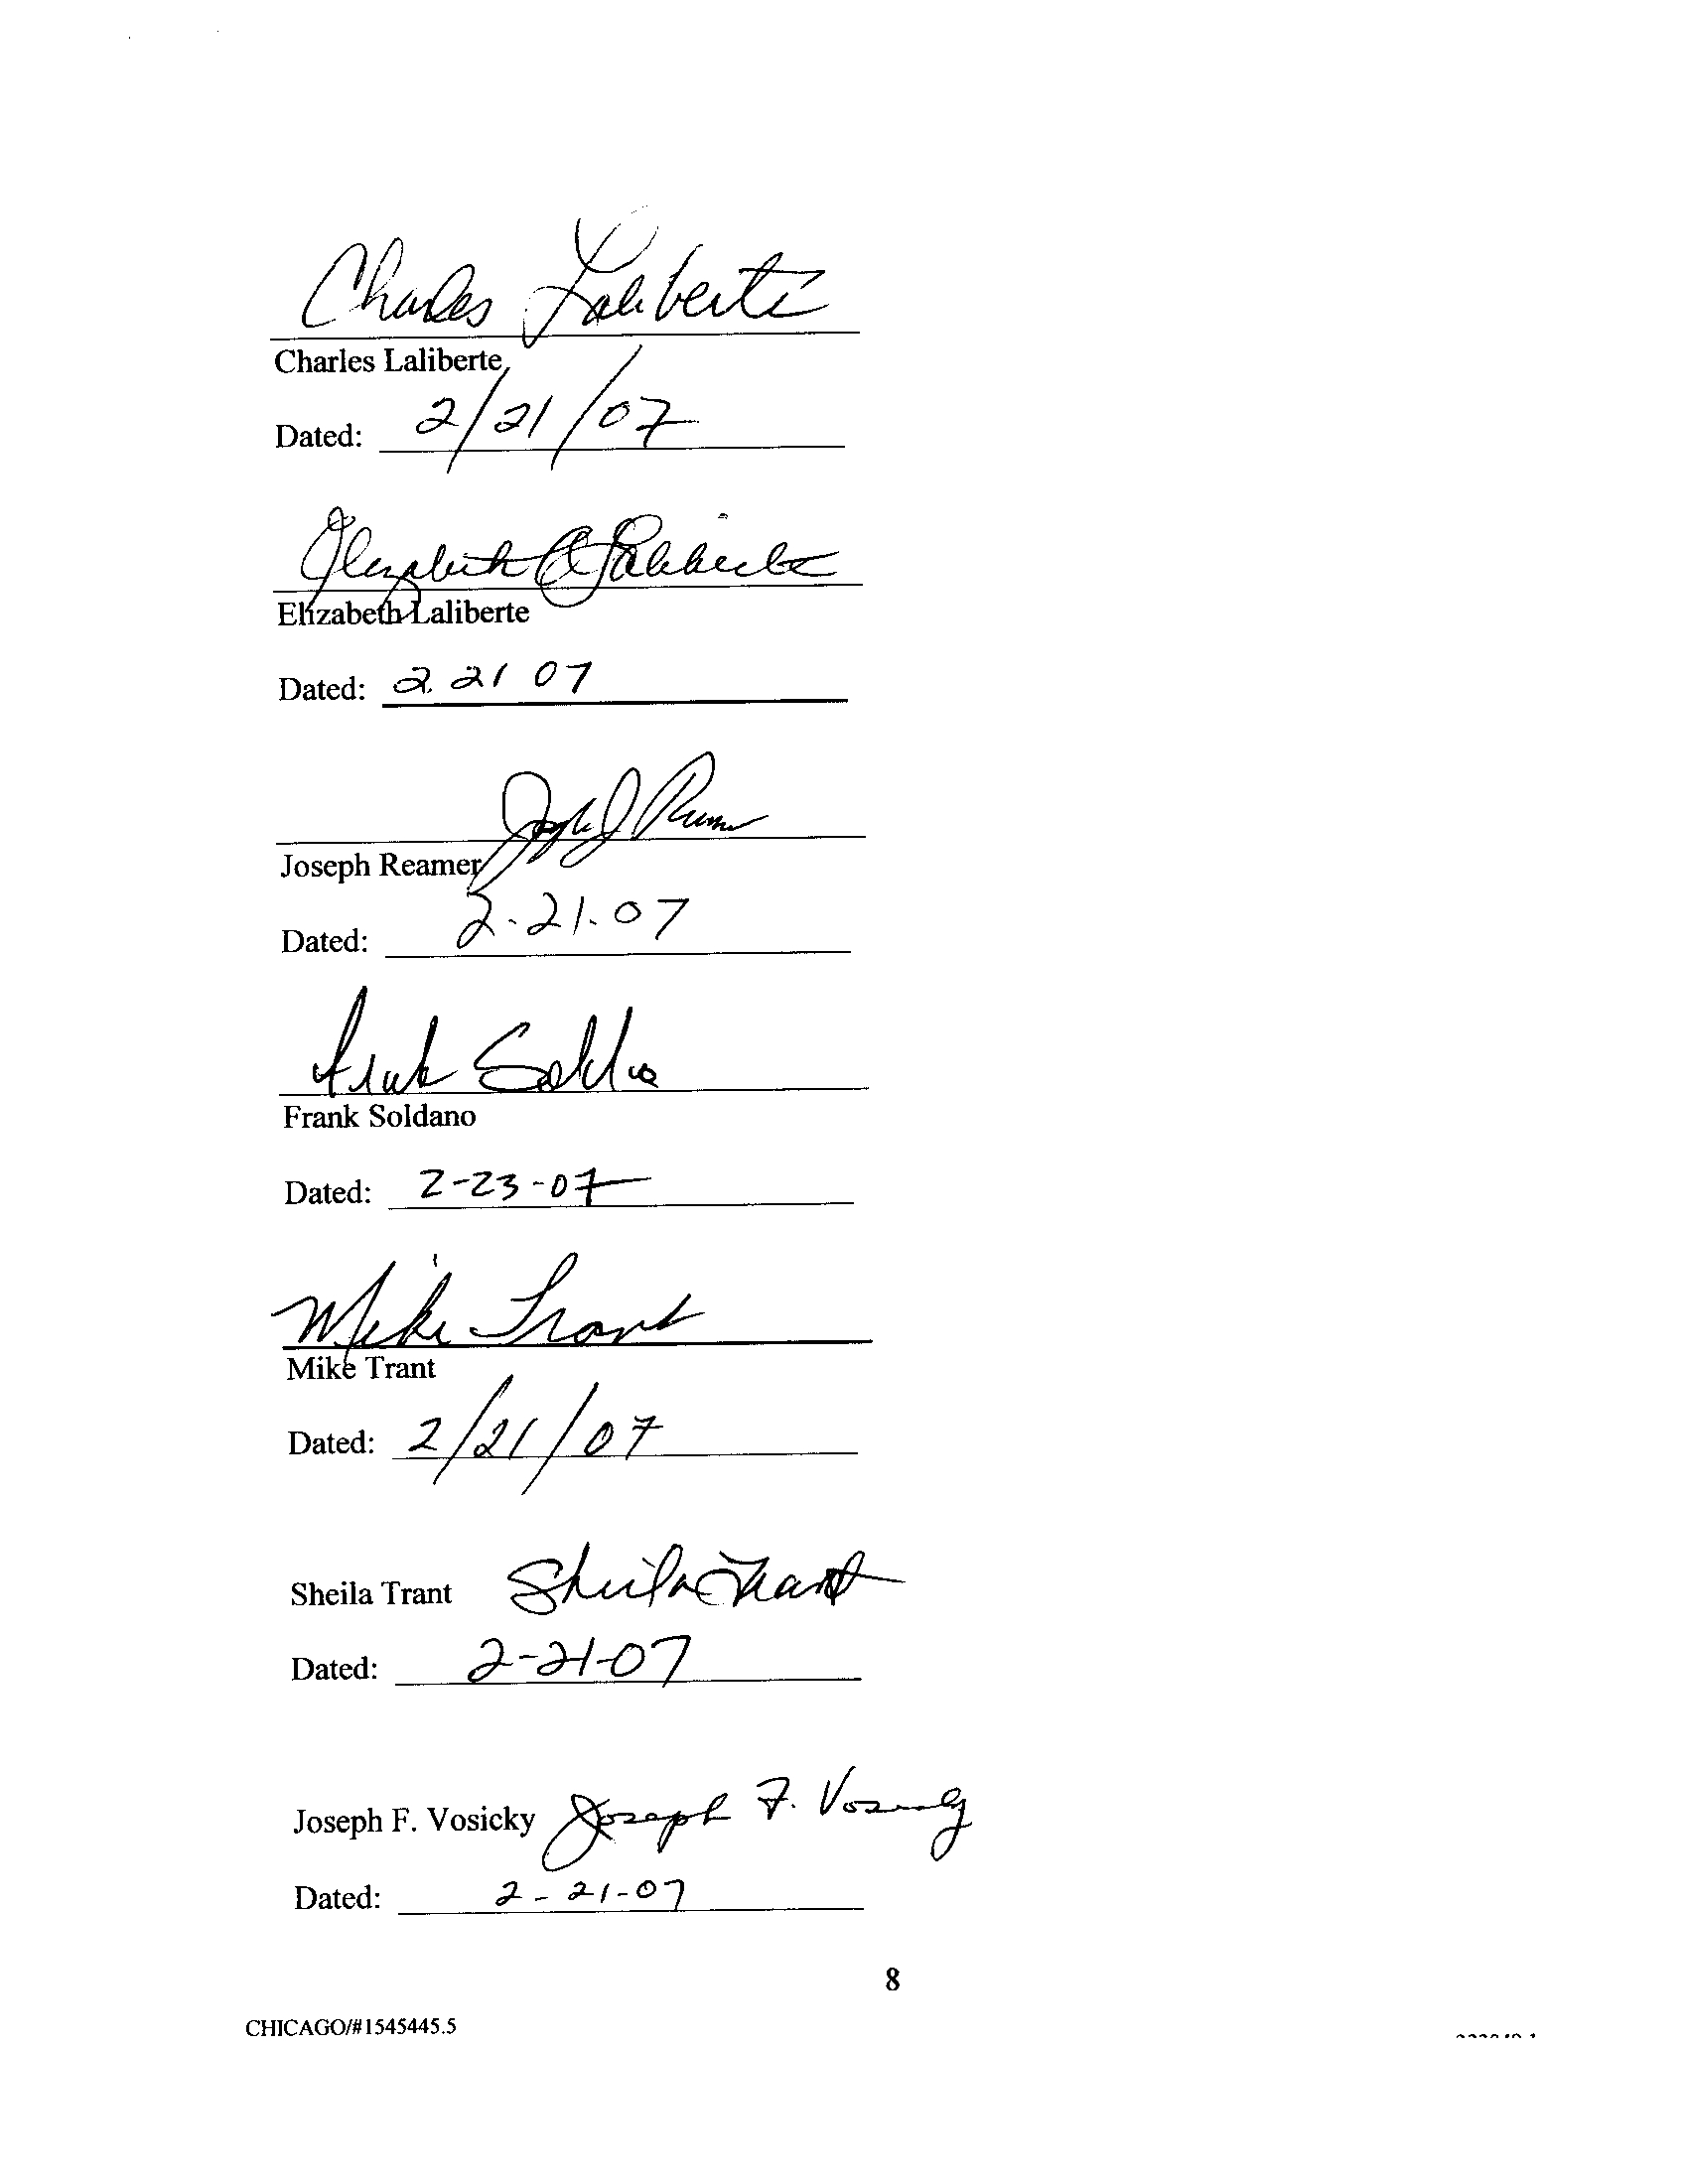 Charles Laliberte
Charles Laliberte
Dated: 2/21/07
Elizabeth A Laliberte
Elizabeth Laliberte
Dated: 2.21 07
Joseph J Reamer
Joseph Reamer
Dated: 2-21-07
Frank Soldano
Frank Soldano
Dated: 2-23-07
Mike Trant
Mike Trant
Dated: 2/21/07
Sheila Trant Sheila Trant
Dated: 2-21-07
Joseph F. Vosicky Joseph F. Vosicky
Dated: 2-21-07
8
CHICAGO/#1545445.5